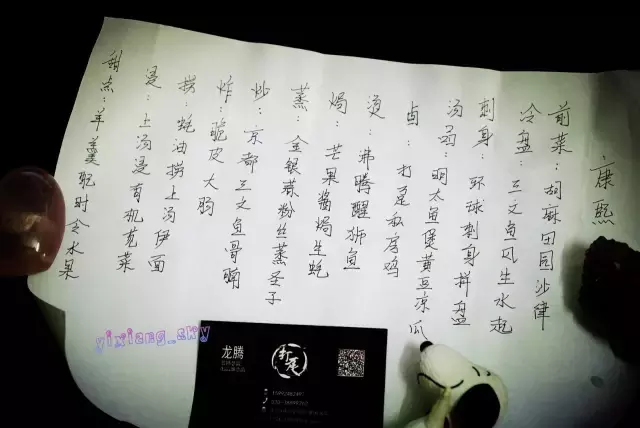 康熙
前菜：胡麻田园沙律
冷盘：三文鱼风生水起
刺身：环球刺身拼盘
汤函：明太鱼煲黄豆凉瓜
卤：打尾私房鸡
烫：沸腾醒狮鱼
焗：芒果酱焗生蚝
蒸：金银蒜粉丝蒸圣子
炒：京都三文鱼骨腩
炸：脆皮大肠
捞：蚝油捞上汤伊面
浸：上汤浸有机苋菜
甜点：羊羹配时令水果
yixiang_sky
龙腾
打尾